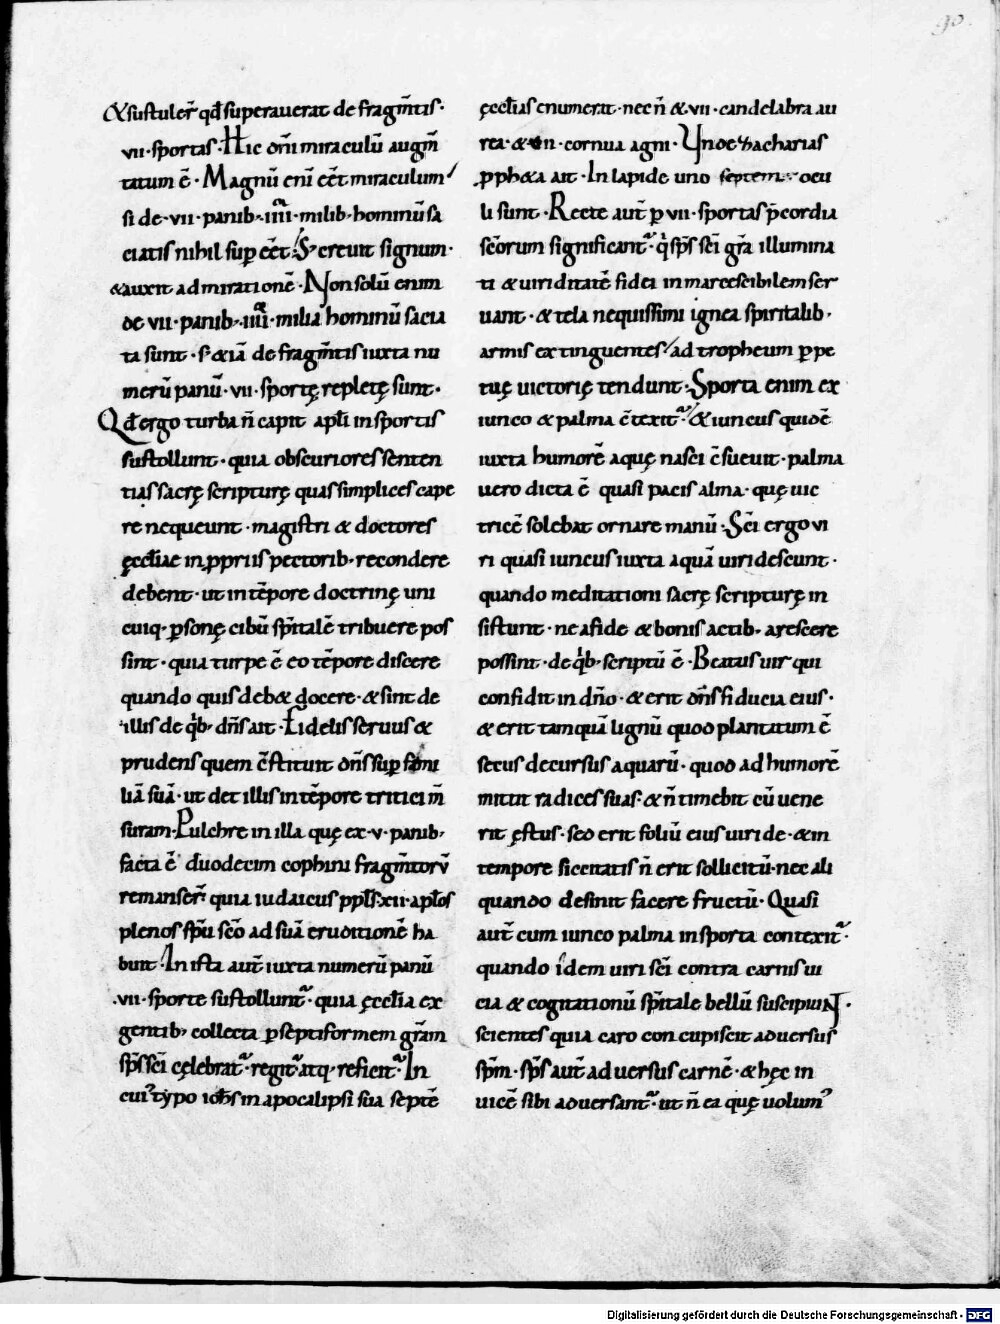 90.
&sustuler̄ qđ superauerat de fragm̄tis·
vii·sportas·Hic om̄i miraculū augm̄
tatum ē·Magnū eni ēēt miraculum
si de·vii·panib·iiii·milib·hominū sa
ciatis nihil sup ēēt·S; creuit signum·
&auxit admirationē·Non solū enim
de vii·panib·iiii·milia hominū sacia
ta sunt·s; &iā de fragm̄tis iuxta nu
merū panū·vii·sportę repletę sunt·
Qđ ergo turba n̄ capit apłi in sportis
sustollunt·quia obscuriores senten
tias sacrę scripturę quas simplices cape
re nequeunt·magistri & doctores
ęccłiae in ꝓpriis pectorib·recondere
debent·ut in tēpore doctrinę uni
cuiq·ꝑsonę cibū sp̄italē tribuere pos
sint·quia turpe ē eo tēpore discere
quando quis deb& docere·&sint de
illis de qͥb·dn̄s ait·Fidelis seruus &
prudens quem c̄stituit dn̄s sup fami
liā suā·ut det illis in tēpore tritici m̄
suram·Pulchre in illa quę ex·v·panib·
facta ē duodecim cophini fragm̄torū
remanser̄ quia iudaicus ppłs·xii·apłos
plenos sp̄u sc̄o ad suā eruditionē ha
buit·In ista aut̄ iuxta numerū panū
·vii·sporte sustollunt᷑·quia ęccłia ex
gentib·collecta ꝑ septiformem gr̄am
sp̄s sc̄i cęlebrat᷑·regit᷑ atq·reficit᷑·In
cui᷒ typo ioħs in apocalipsi sua septē
ęccłias enumerat·nec n̄ &·vii·candelabra au
rea·&·vii·cornua agni·Vnde zacharias
ꝓph&a ait·In lapide uno septem ocu
li sunt·Recte aut̄ ꝑ vii·sportas p̄cordia
sc̄orum significant᷑·qͥ sp̄s sc̄i gr̄a illumina
ti & uiriditatē fidei inmarcescibilem ser
uant·& tela nequissimi ignea spiritalib·
armis extinguentes/ad tropheum ꝑpe
tuę uictorię tendunt·Sporta enim ex
iunco & palma c̄texit᷑·& iuncus quidē
iuxta humorē aquę nasci c̄sueuit·palma
uero dicta ē quasi pacis alma·quę uic
tricē solebat ornare manū·Sc̄i ergo vi
ri quasi iuncus iuxta aquā uiridescunt·
quando meditationi sacrę scripturę in
sistunt·ne a fide & bonis actib·arescere
possint·de qͥb·scriptū ē·Beatus uir qui
confidit in dn̄o·& erit dn̄s fiducia eius·
& erit tamquā lignū quod plantatum ē
secus decursus aquarū·quod ad humorē
mittit radices suas·& n̄ timebit cū uene
rit ęstus·sed erit foliū eius uiride·& in
tempore siccitatis n̄ erit sollicitū·nec ali
quando desinit facere fructū·Quasi
aut̄ cum iunco palma in sporta contexit᷑·
quando idem uiri sc̄i contra carnis ui
cia & cogitationū sp̄itale bellū suscipiunt·
scientes quia caro concupiscit aduersus
sp̄m·sp̄s aut̄ aduersus carnē·& hęc in
uicē sibi aduersant᷑·ut n̄ ea quę uolum᷒
Digitalisierung gefördert durch die Deutsche Forschungsgemeinschaft - DFG